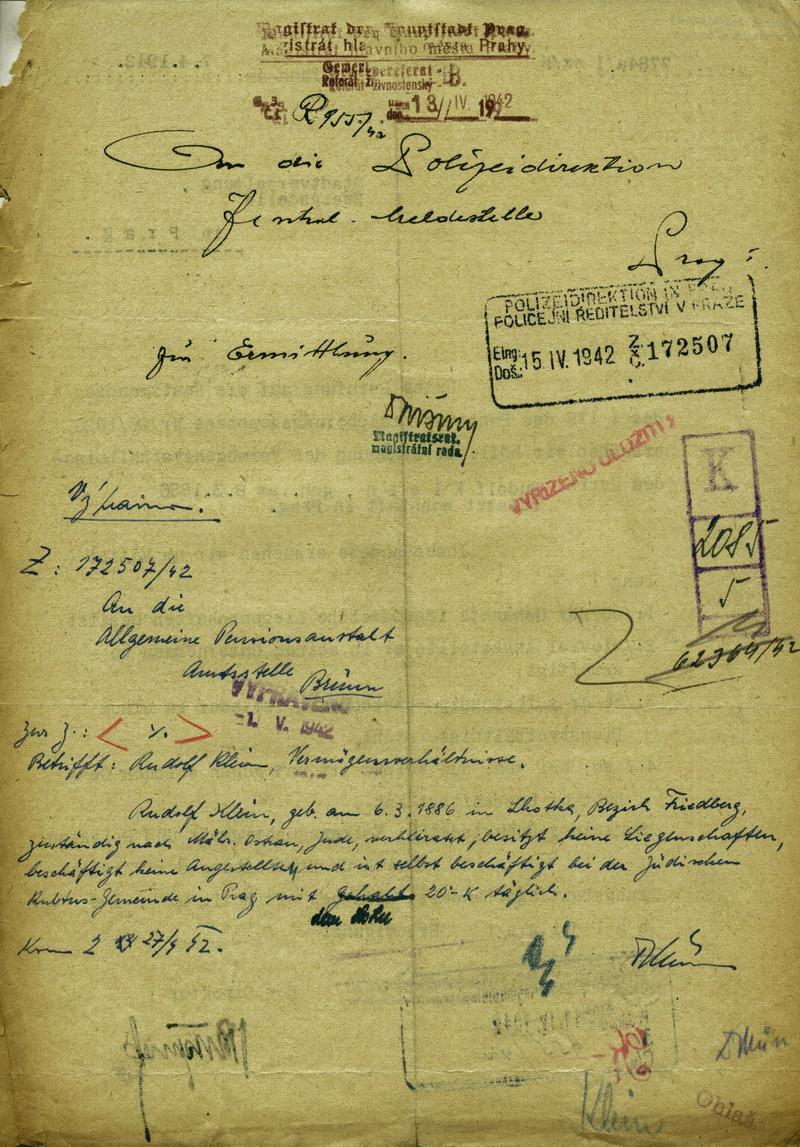 Magistrat der Hauptstadt Prag.
Magistrát hlavního města Prahy.
Gewerbereferat - B.
Referát živnostenský
R 955/42
13/IV. 1942
An die Polizeidirektion
Zentral-Meldestelle
Prag
POLIZEIDIREKTION IN PRAG
POLICEJNÍ ŘEDITELSTVÍ V PRAZE
Eing.:
Doš.: 15. IV. 1942 Z. Č. 172507
zur Ermittlung.
Magistratsrat.
magistrátní rada.
K
2085
5
62304/42
Z: 172507/42
An die
Allgemeine Pensionsanstalt
Amtsstelle Brünn
VYPRAVENO
-1. V. 1942
Zur Z.: < ./. >
Betrifft: Rudolf Klein, Vermögensverhältnisse.
Rudolf Klein, geb. am 6.3.1886 in Lhotka, Bezirk Friedberg,
zuständig nach Mähr. Ostrau, Jude, verheiratet, besitzt keine Liegenschaften,
beschäftigt keine Angestellten und ist selbst beschäftigt bei der Jüdischen
Kultus-Gemeinde in Prag mit gehalt 20·-K täglich.
27/4 42.
Klein
Ohlaš.